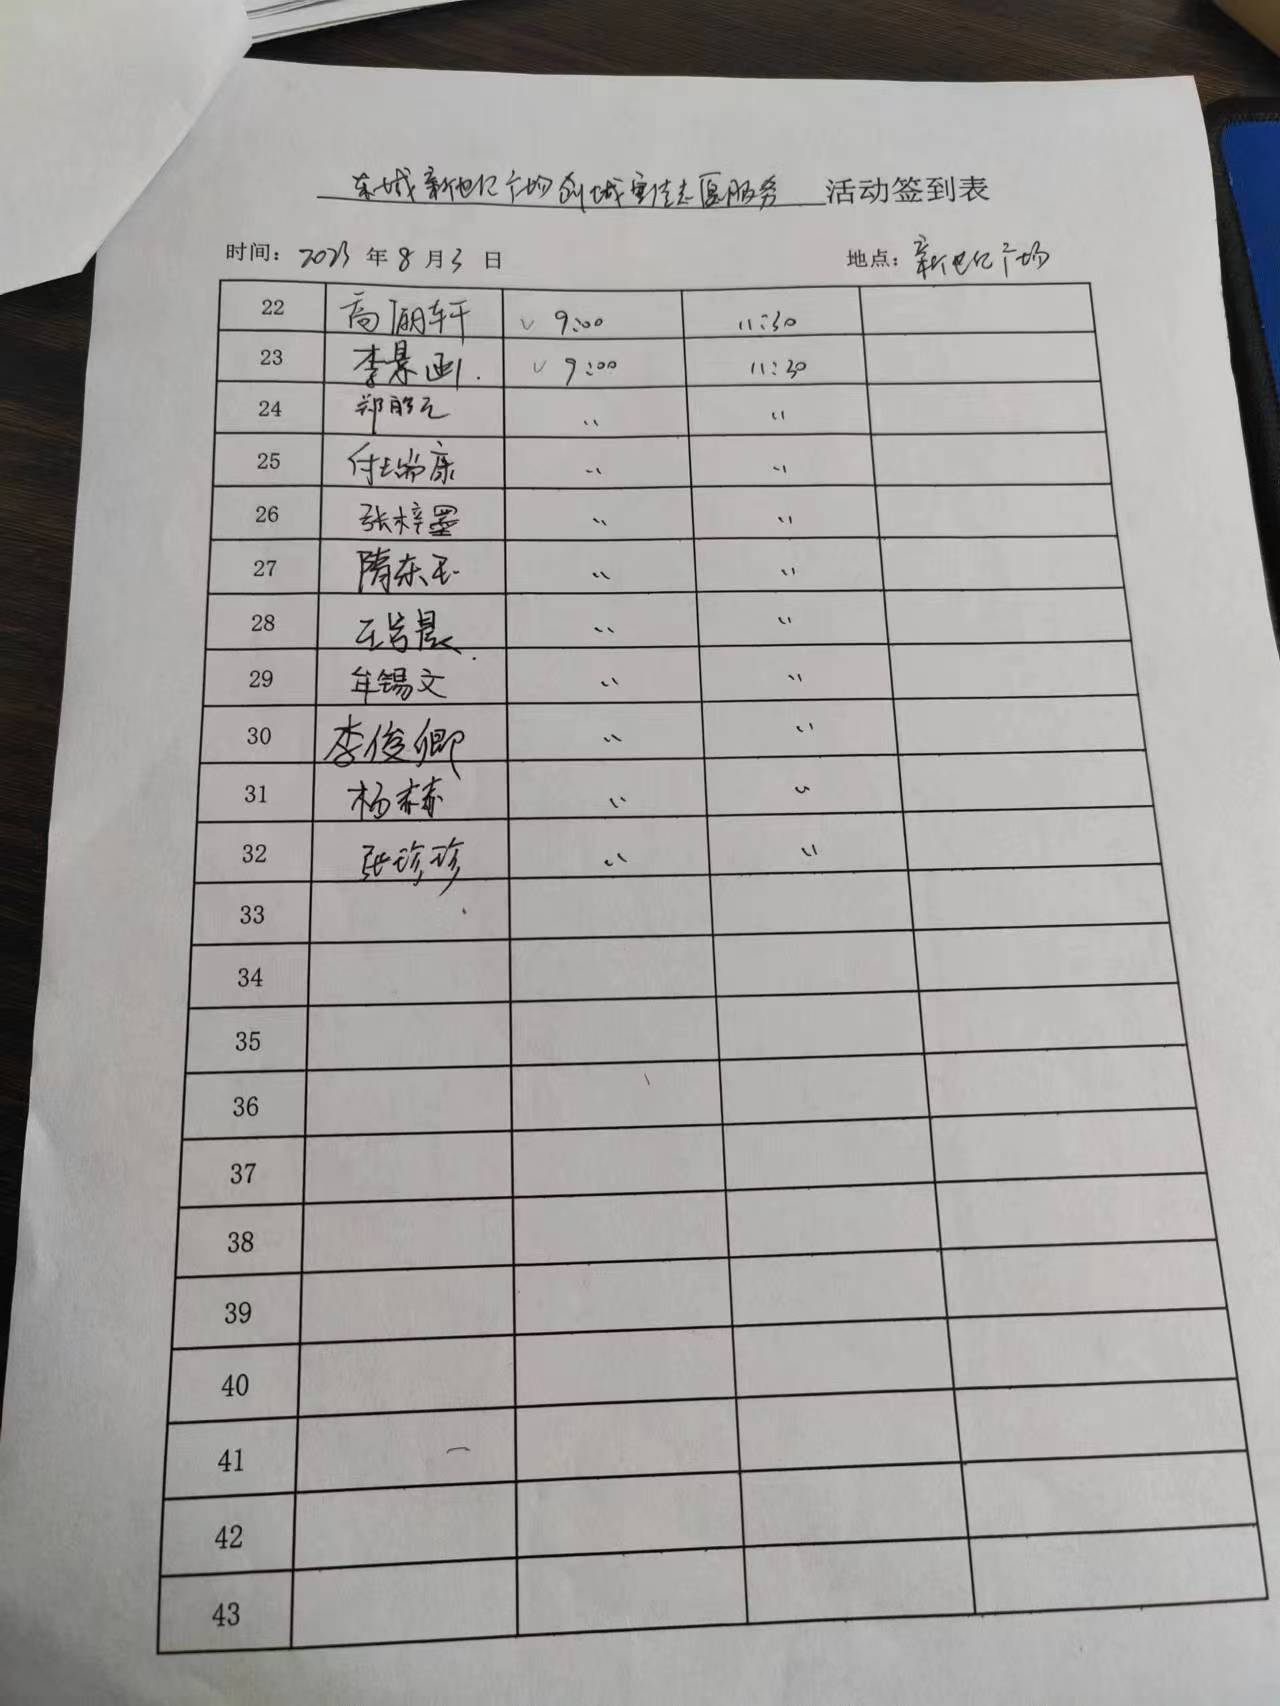 东城新世纪广场创城宣传志愿服务 活动签到表
时间：2023 年 8 月 3 日 地点：新世纪广场
22 高丽轩 √ 9:00 11:30
23 李景画 √ 9:00 11:30
24 郑 〃 〃
25 付瑞康 〃 〃
26 张梓墨 〃 〃
27 隋东玉 〃 〃
28 晨 〃 〃
29 牟锡文 〃 〃
30 李俊卿 〃 〃
31 杨赫 〃 〃
32 张珍珍 〃 〃
33
34
35
36
37
38
39
40
41
42
43